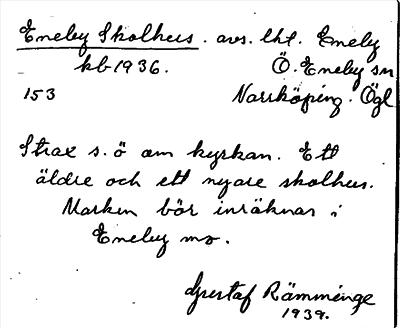 Eneby Skolhus. avs. lht. Eneby
kb 1936. Ö. Eneby sn
153 Norrköping. Ögl
Strax s. ö om kyrkan. Ett
äldre och ett nyare skolhus.
Marken bör inräknas i
Eneby mo.
Gustaf Rämminge
1939.